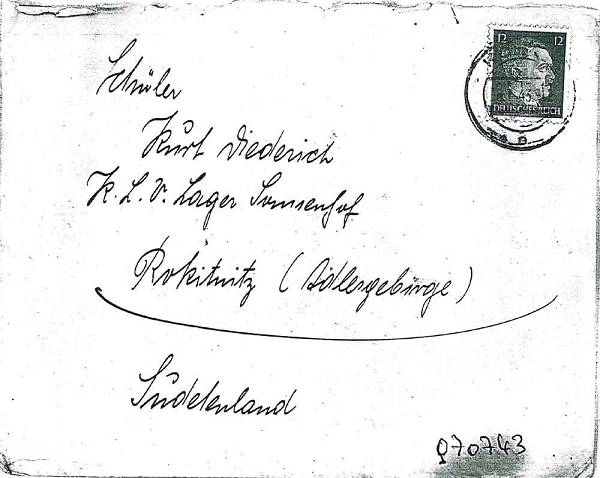 12 12
DEUTSCHES REICH
Schüler
Kurt Diederich
K. L. V. Lager Sonnenhof
Rokitnitz (Adlergebirge)
Sudetenland
070743